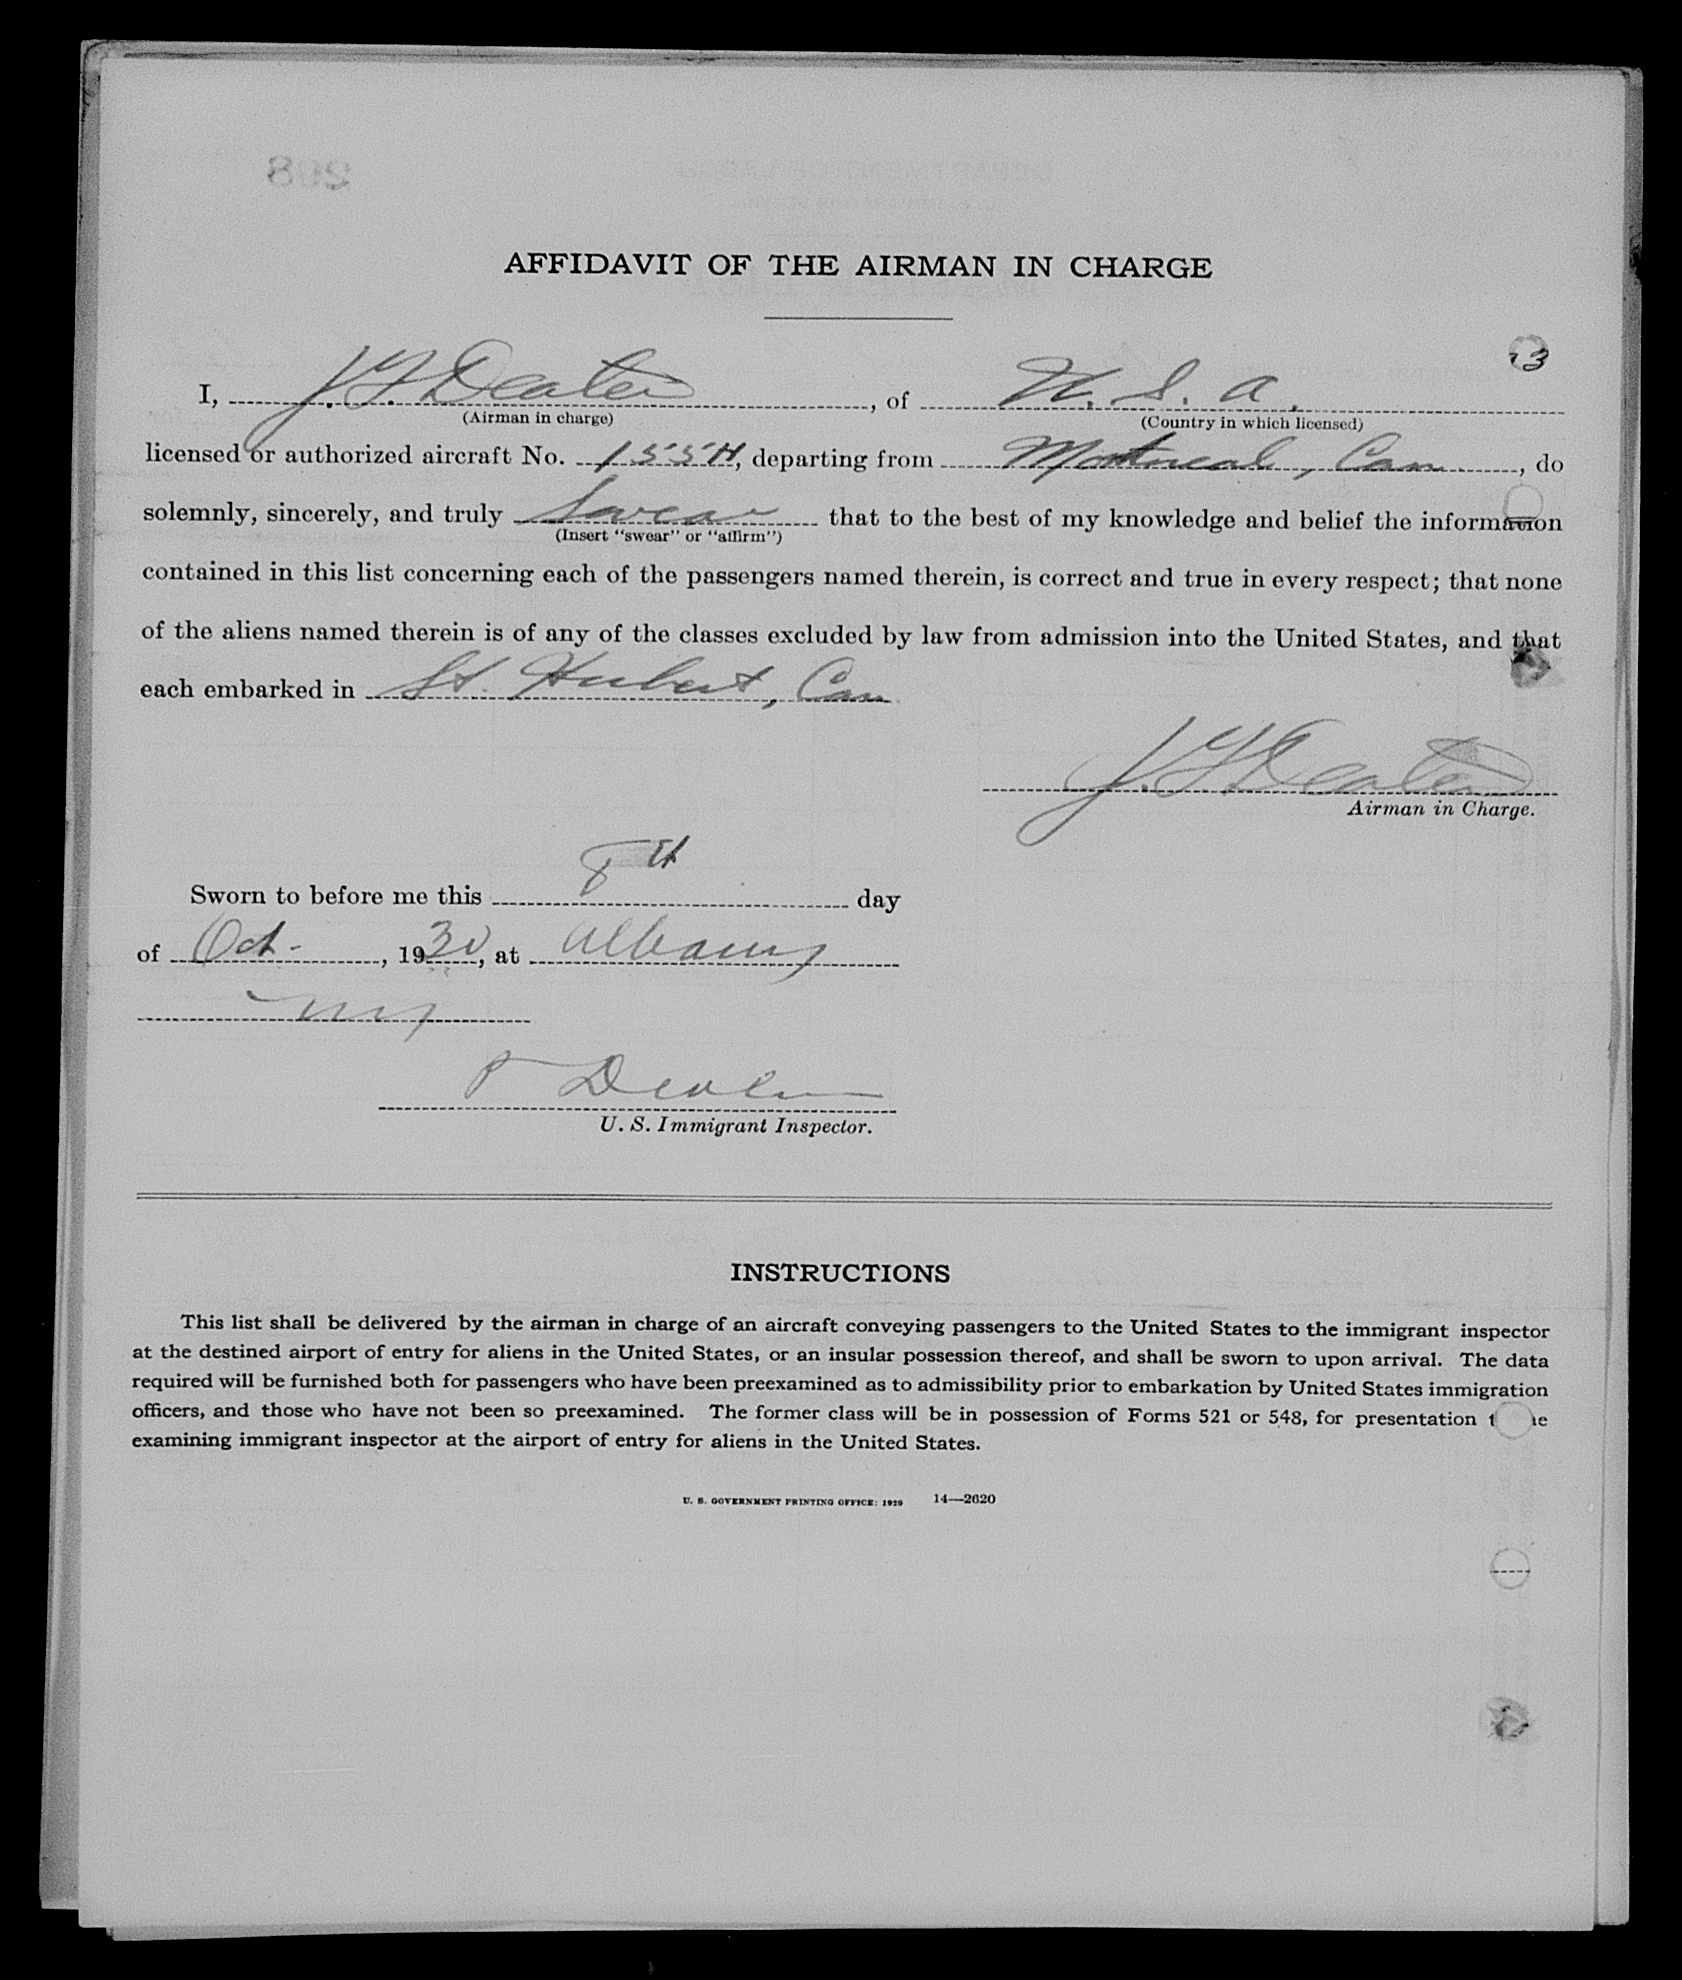 AFFIDAVIT OF THE AIRMAN IN CHARGE
3
I, J. F. Deater, of U. S. A.
(Airman in charge) (Country in which licensed)
licensed or authorized aircraft No. 155H, departing from Montreal, Can, do
solemnly, sincerely, and truly Swear that to the best of my knowledge and belief the information
(Insert "swear" or "affirm")
contained in this list concerning each of the passengers named therein, is correct and true in every respect; that none
of the aliens named therein is of any of the classes excluded by law from admission into the United States, and that
each embarked in St. Hubert, Can
J. F. Deater
Airman in Charge.
Sworn to before me this 8th day
of Oct-, 1930, at Albany
NY
U. S. Immigrant Inspector.
INSTRUCTIONS
This list shall be delivered by the airman in charge of an aircraft conveying passengers to the United States to the immigrant inspector
at the destined airport of entry for aliens in the United States, or an insular possession thereof, and shall be sworn to upon arrival. The data
required will be furnished both for passengers who have been preexamined as to admissibility prior to embarkation by United States immigration
officers, and those who have not been so preexamined. The former class will be in possession of Forms 521 or 548, for presentation
examining immigrant inspector at the airport of entry for aliens in the United States.
U. S. GOVERNMENT PRINTING OFFICE: 1929 14—2620